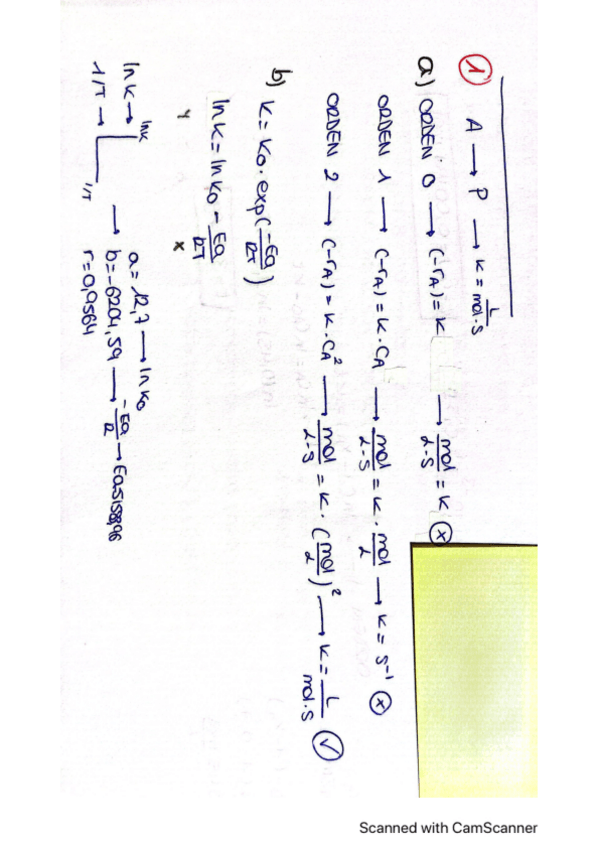 ①
A → P → k = L/mol·s
a) ORDEN 0 → (-rA) = k → mol/L·s = k ⓧ
ORDEN 1 → (-rA) = k · CA → mol/L·s = k · mol/L → k = s⁻¹ ⓧ
ORDEN 2 → (-rA) = k · CA² → mol/L·s = k · (mol/L)² → k = L/mol·s ✓
b) k = k0 · exp(-Ea/RT)
ln k = ln k0 - Ea/RT
y x
ln k → ln k
1/T → 1/T →
a = 12,7 → ln k0
b = -6204,59 → -Ea/R →
r = 0,9564
Scanned with CamScanner